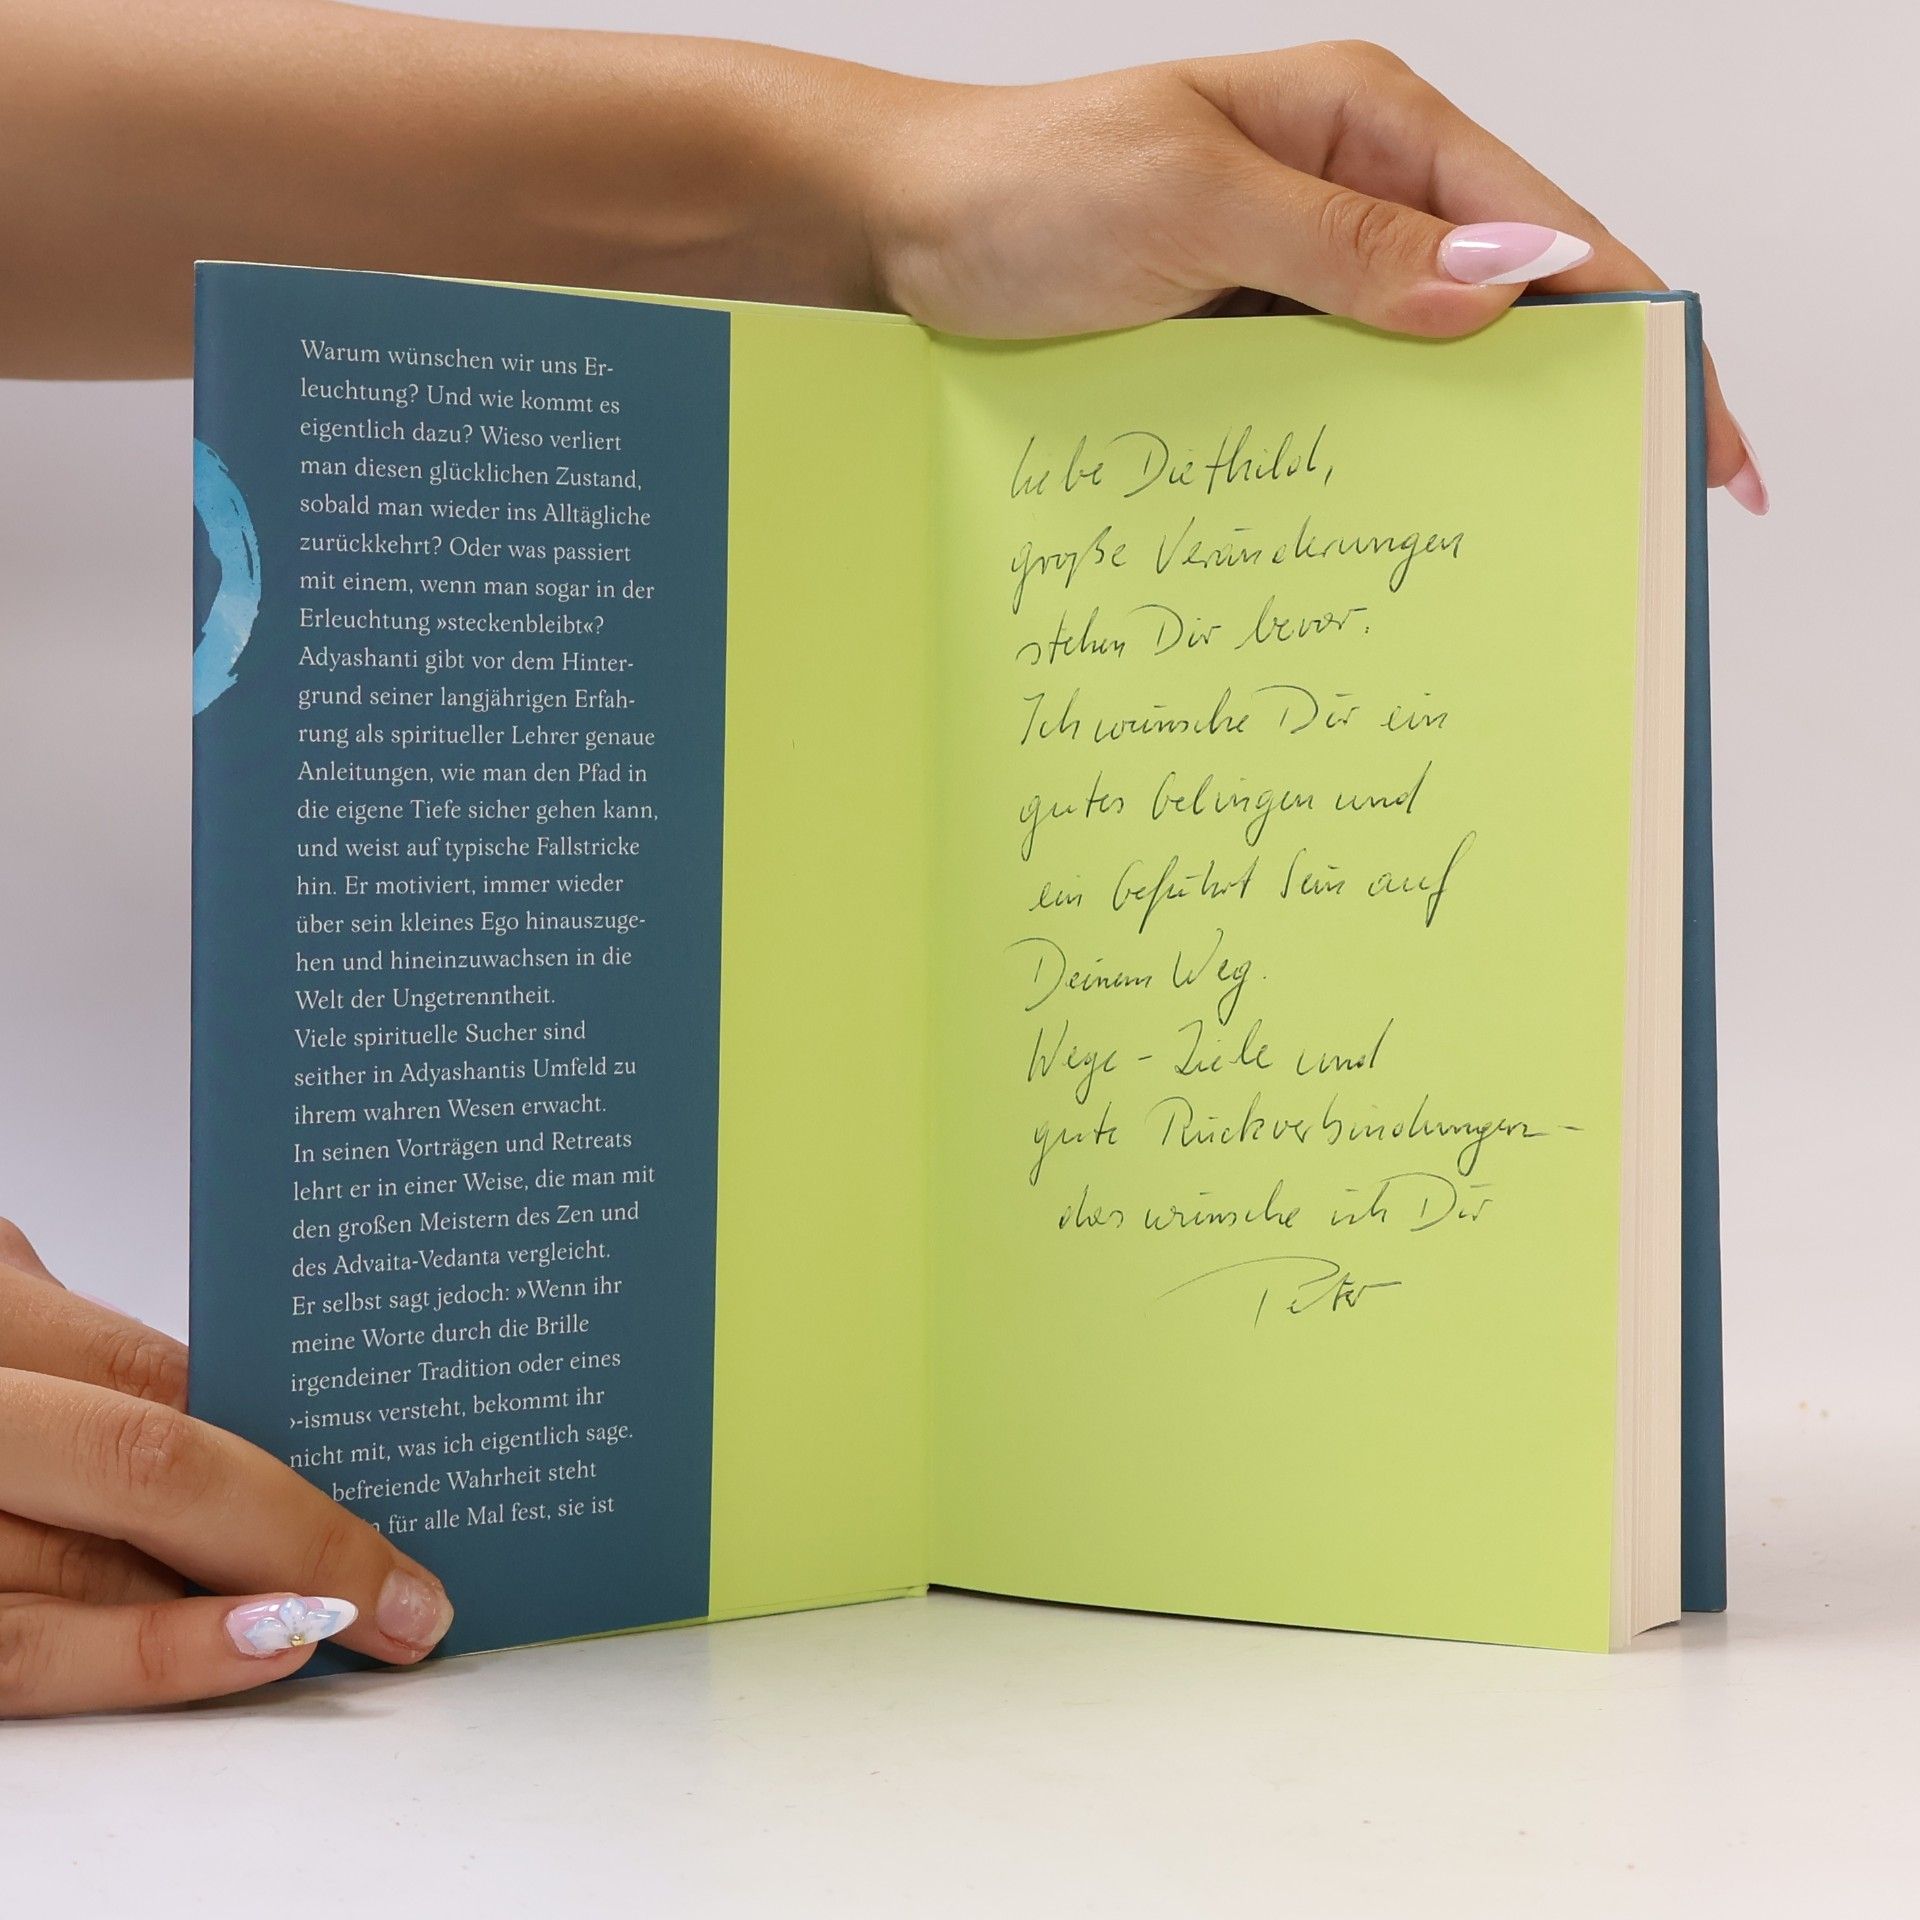 Warum wünschen wir uns Er-
leuchtung? Und wie kommt es
eigentlich dazu? Wieso verliert
man diesen glücklichen Zustand,
sobald man wieder ins Alltägliche
zurückkehrt? Oder was passiert
mit einem, wenn man sogar in der
Erleuchtung »steckenbleibt«?
Adyashanti gibt vor dem Hinter-
grund seiner langjährigen Erfah-
rung als spiritueller Lehrer genaue
Anleitungen, wie man den Pfad in
die eigene Tiefe sicher gehen kann,
und weist auf typische Fallstricke
hin. Er motiviert, immer wieder
über sein kleines Ego hinauszuge-
hen und hineinzuwachsen in die
Welt der Ungetrenntheit.
Viele spirituelle Sucher sind
seither in Adyashantis Umfeld zu
ihrem wahren Wesen erwacht.
In seinen Vorträgen und Retreats
lehrt er in einer Weise, die man mit
den großen Meistern des Zen und
des Advaita-Vedanta vergleicht.
Er selbst sagt jedoch: »Wenn ihr
meine Worte durch die Brille
irgendeiner Tradition oder eines
›-ismus‹ versteht, bekommt ihr
nicht mit, was ich eigentlich sage.
befreiende Wahrheit steht
für alle Mal fest, sie ist
liebe Diethild,
große Veränderungen
stehen Dir bevor.
Ich wünsche Dir ein
gutes Gelingen und
ein Geführt Sein auf
Deinem Weg.
Wege - Ziele und
gute Rückverbindungen -
das wünsche ich Dir
Peter